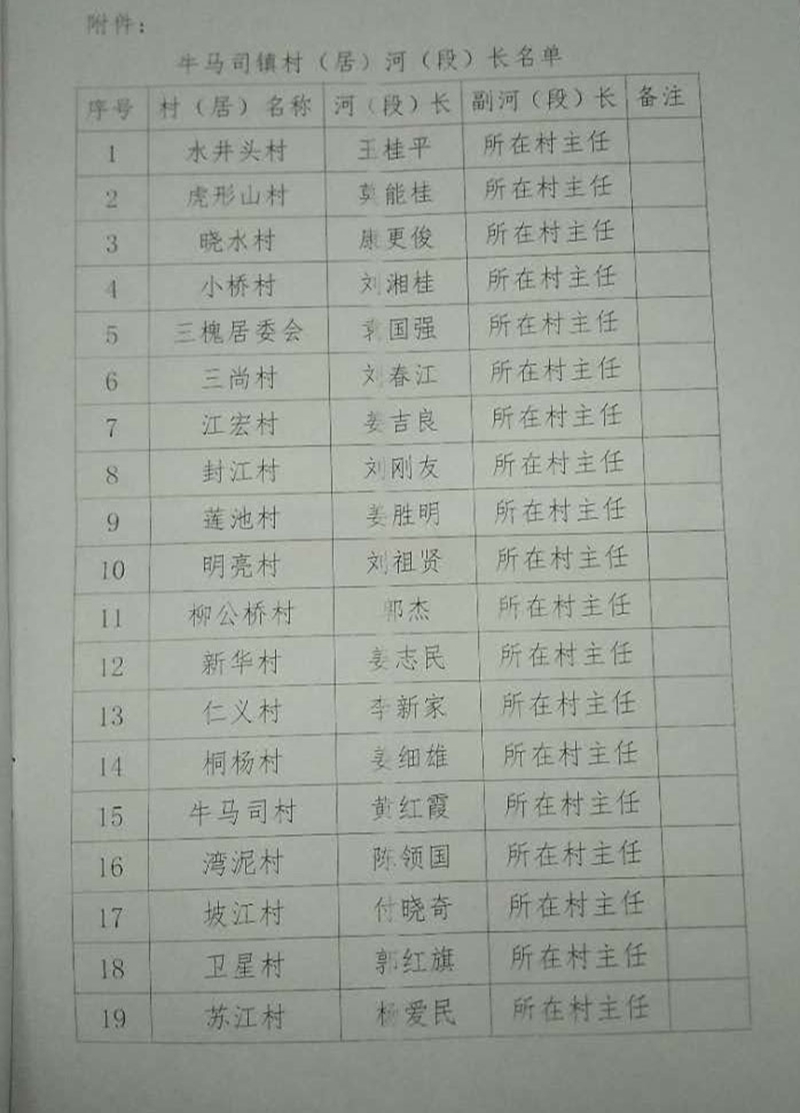 附件：
牛马司镇村（居）河（段）长名单
序号 村（居）名称 河（段）长 副河（段）长 备注
1 水井头村 王桂平 所在村主任
2 虎形山村 莫能桂 所在村主任
3 晓水村 康更俊 所在村主任
4 小桥村 刘湘桂 所在村主任
5 三槐居委会 袁国强 所在村主任
6 三尚村 刘春江 所在村主任
7 江宏村 姜吉良 所在村主任
8 封江村 刘刚友 所在村主任
9 莲池村 姜胜明 所在村主任
10 明亮村 刘祖贤 所在村主任
11 柳公桥村 郭杰 所在村主任
12 新华村 姜志民 所在村主任
13 仁义村 李新家 所在村主任
14 桐杨村 姜细雄 所在村主任
15 牛马司村 黄红霞 所在村主任
16 湾泥村 陈领国 所在村主任
17 坡江村 付晓奇 所在村主任
18 卫星村 郭红旗 所在村主任
19 苏江村 杨爱民 所在村主任